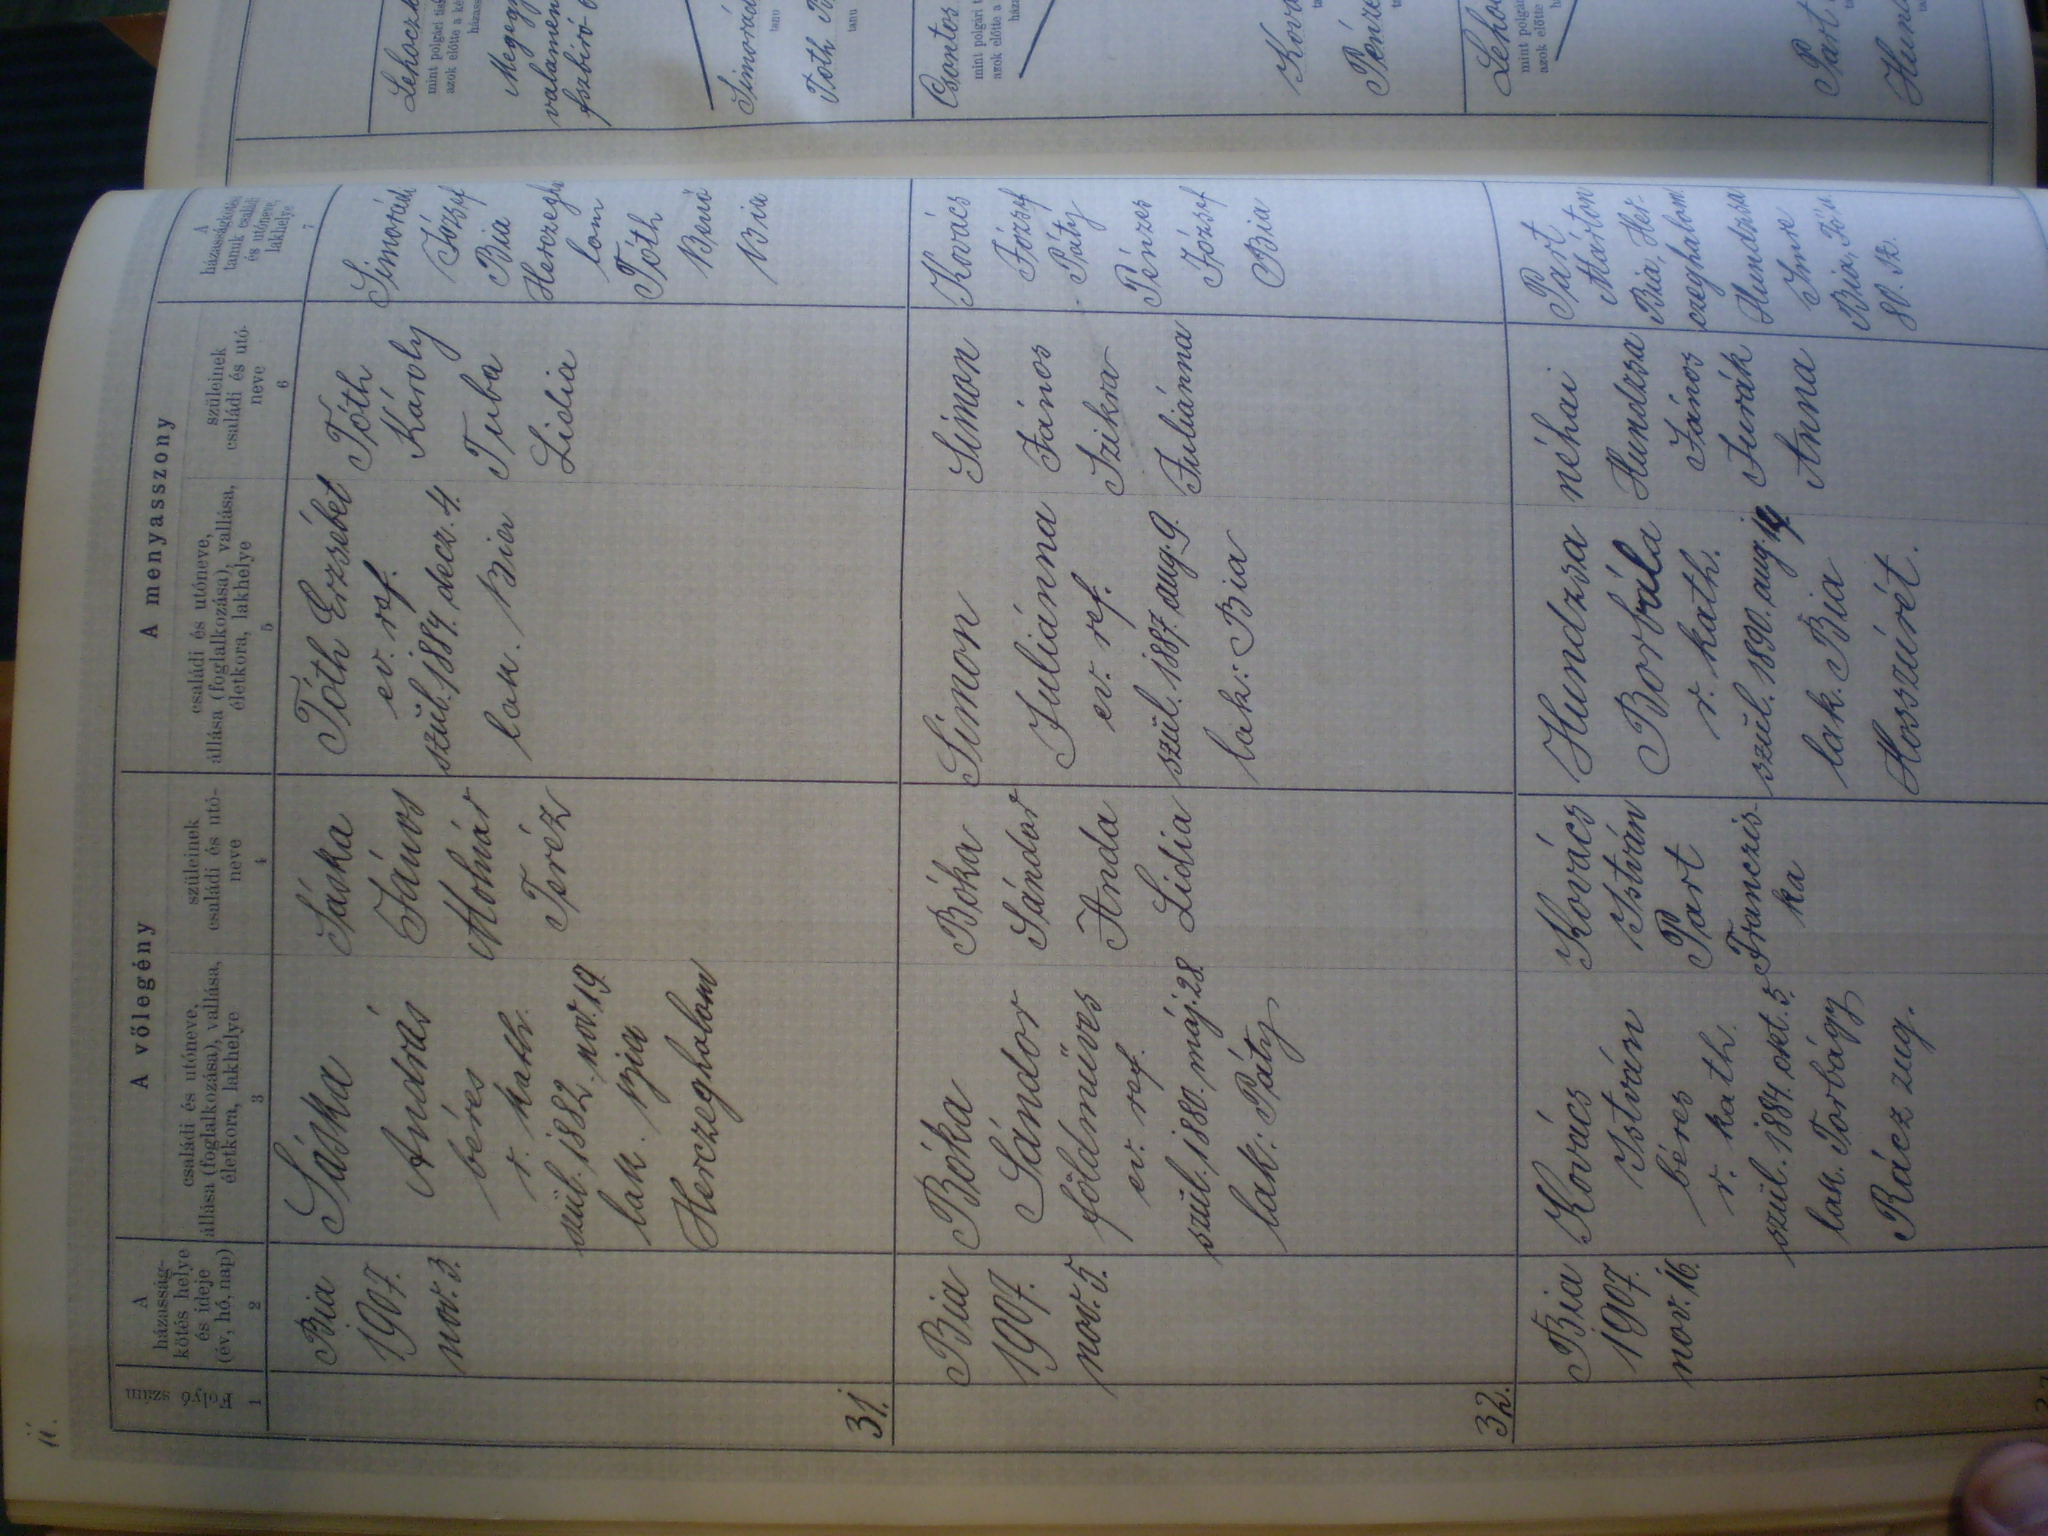 11.
Folyó szám
1
A
házasság-
kötés helye
és ideje
(év, hó, nap)
2
A vőlegény
családi és utóneve,
állása (foglalkozása), vallása,
életkora, lakhelye
3
szüleinek
családi és utó-
neve
4
A menyasszony
családi és utóneve,
állása (foglalkozása), vallása,
életkora, lakhelye
5
szüleinek
családi és utó-
neve
6
A
házasságkötési
tanuk családi
és utóneve,
lakhelye
7
Bia
1907.
nov. 3.
Sáska
András
béres
r. kath.
szül. 1882. nov. 19.
lak. Bia
Herczeghalom
Sáska
János
Molnár
Teréz
Tóth Erzsébet
ev. ref.
szül. 1884. decz. 4.
lak. Bia
Tóth
Károly
Tuba
Lidia
Simorádi
József
Bia
Herczegha
lom
Tóth
Benő
Bia
31.
Bia
1907.
nov. 5.
Bóka
Sándor
földmüves
ev. ref.
szül. 1880. máj. 28.
lak: Páty
Bóka
Sándor
Anda
Lidia
Simon
Juliánna
ev. ref.
szül. 1887. aug. 9.
lak: Bia
Simon
János
Szikra
Juliánna
Kovács
József
Páty
Pénzes
József
Bia
32.
Bia
1907.
nov. 16.
Kovács
István
béres
r. kath.
szül. 1884. okt. 5.
lak. Torbágy
Rácz zug.
Kovács
István
Part
Franczis-
ka
Hundzsa
Borbála
r. kath.
szül. 1890. aug. 19
lak. Bia
Hosszúrét.
néhai
Hundzsa
János
Jurák
Anna
Part
Márton
Bia, Her-
czeghalom
Hundzsa
Imre
Bia,
80. sz.
mint polgári
azok előtte a ké
házass
valamen
főszbiró
Simorád
tanu
Tóth
tanu
Csontos
mint polgári t
azok előtte a
háza
Ková
Pénze
mint polgá
azok előtt
Part
Hund